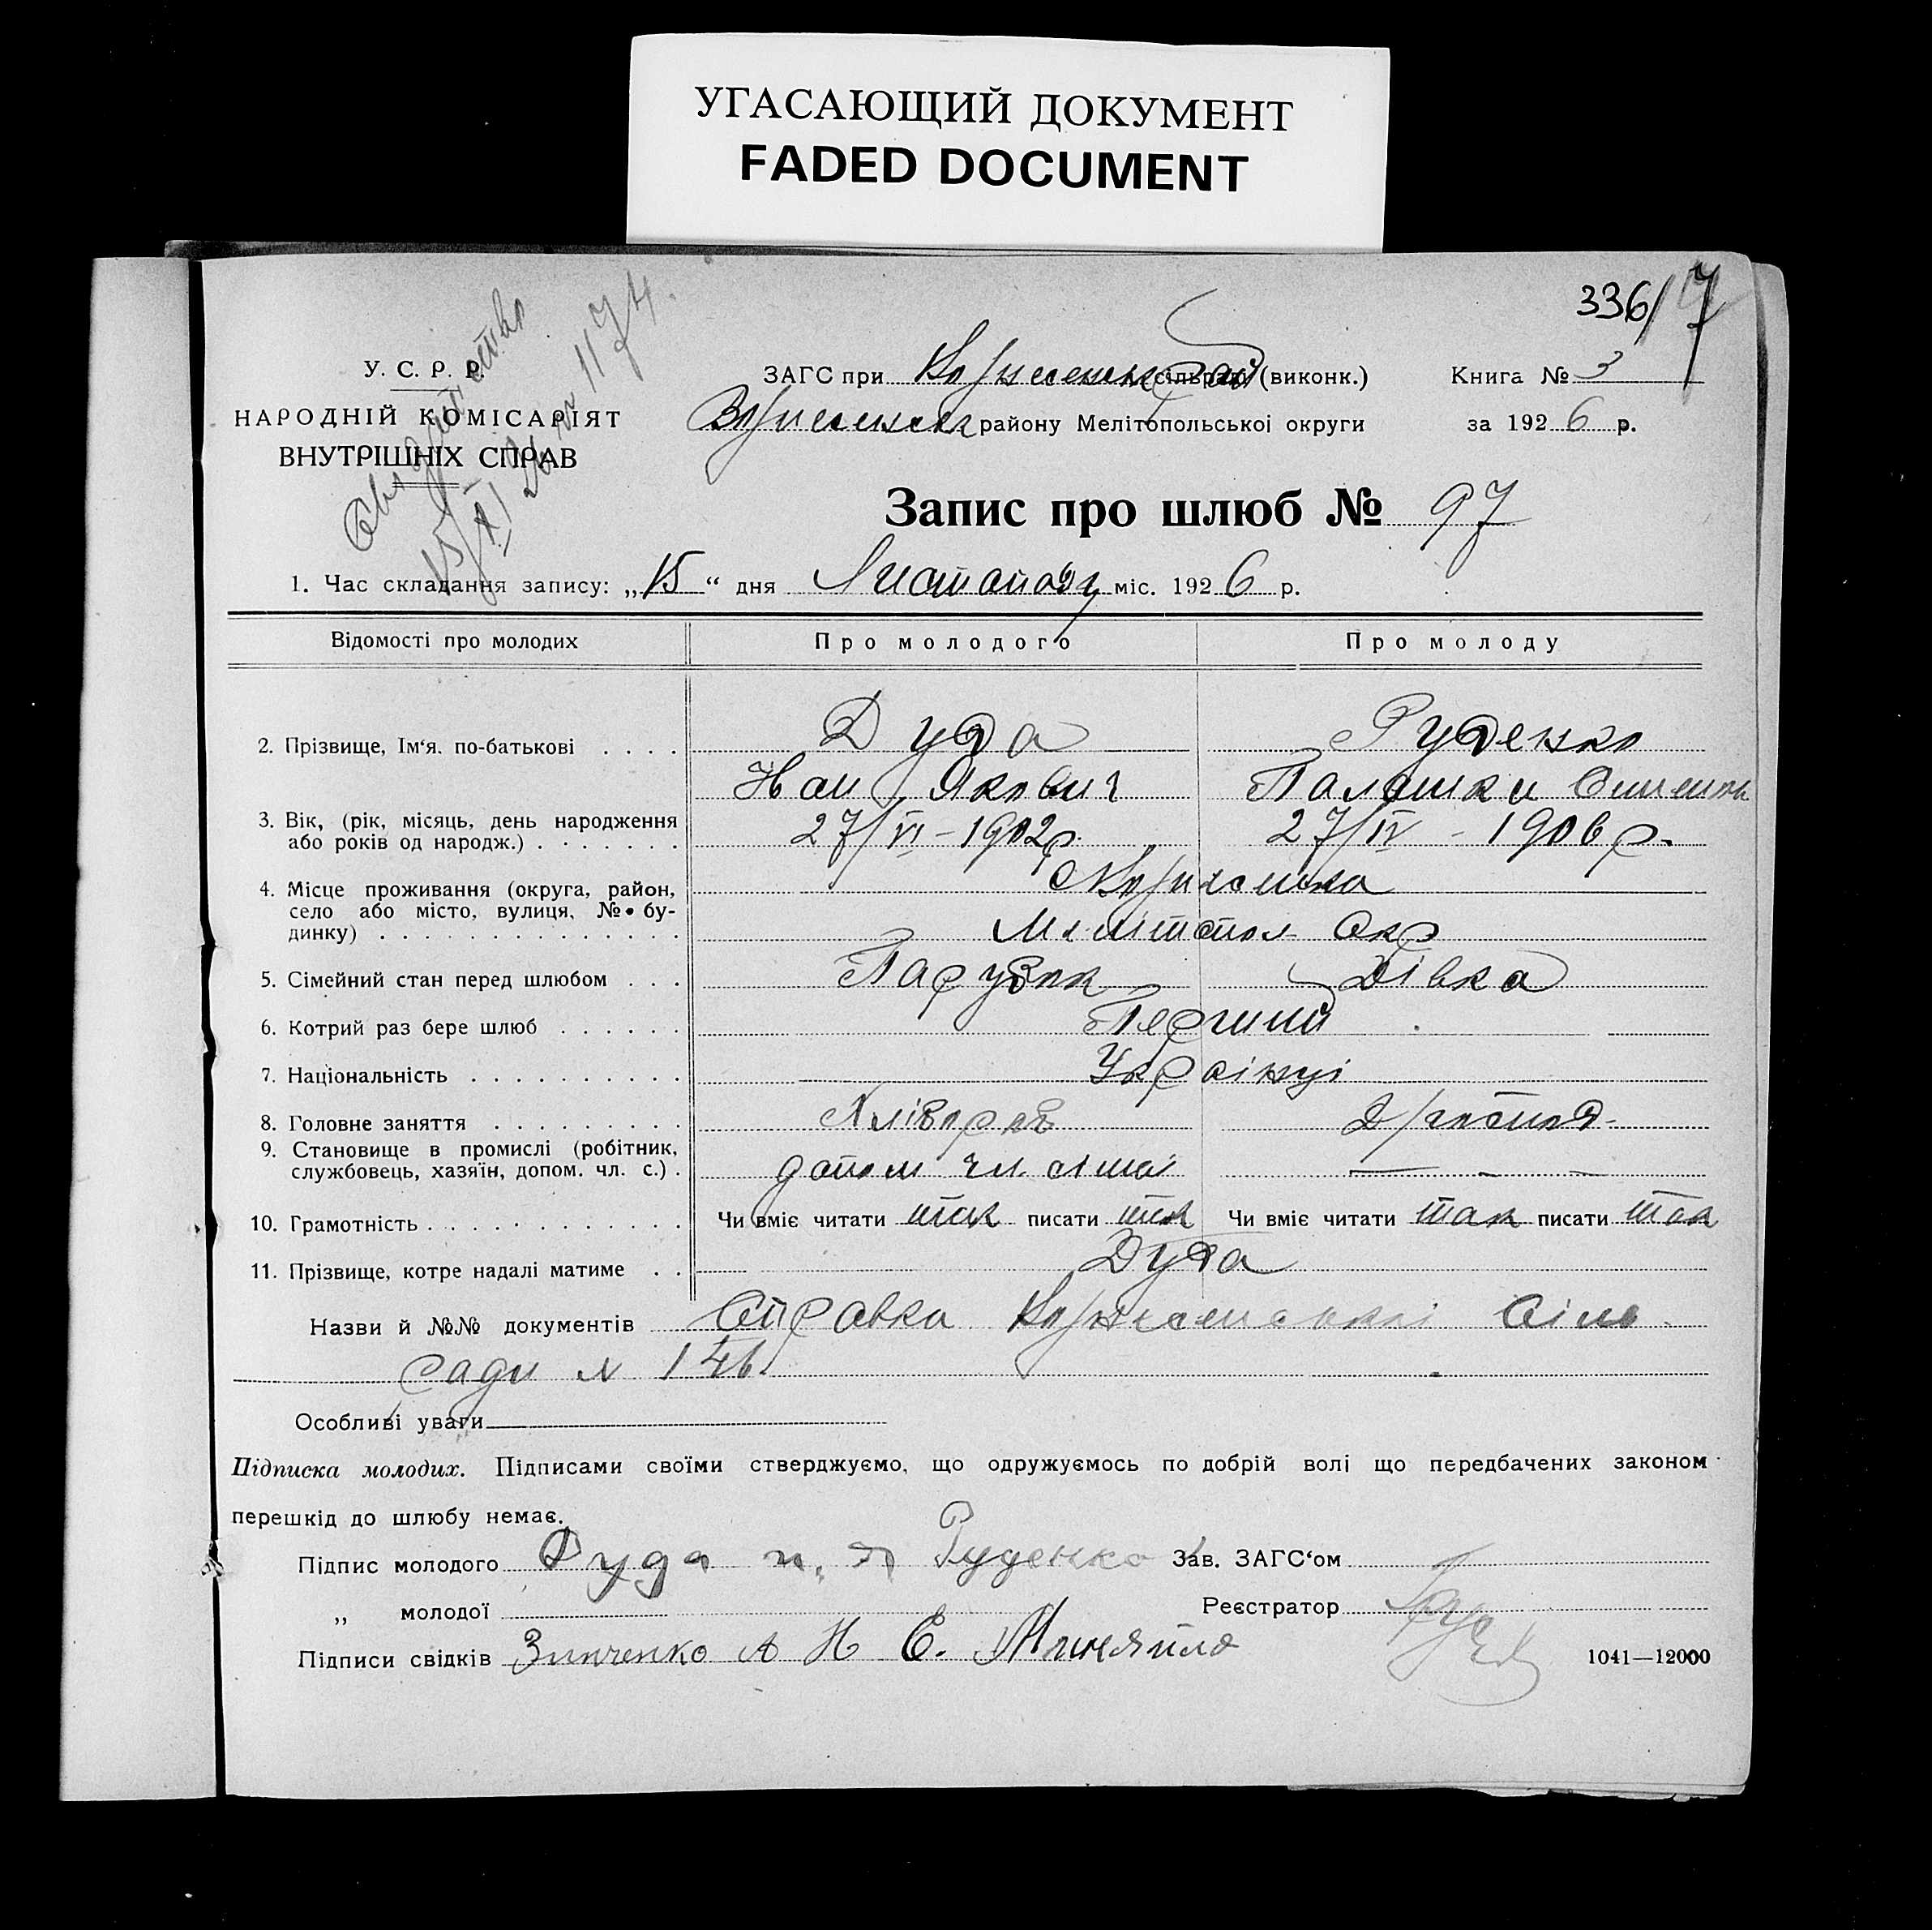 УГАСАЮЩИЙ ДОКУМЕНТ
FADED DOCUMENT
336/7
У. С. Р. Р.
НАРОДНІЙ КОМІСАРІЯТ
ВНУТРІШНІХ СПРАВ
15/XI 26 № 1174.
ЗАГС при сільраді (виконк.)
району Мелітопольскої округи
Книга № 3
за 1926 р.
Запис про шлюб № 97
1. Час складання запису: „15“ дня Листопаду міс. 1926 р.
Відомості про молодих Про молодого Про молоду
2. Прізвище, Ім‘я, по-батькові . . . . Дуда Руденко
Якович
3. Вік, (рік, місяць, день народження або років од народж.) . . . . . . . 27/VI – 1902р. 27/IV – 1906 р.
4. Місце проживання (округа, район, село або місто, вулиця, № будинку) . . . . . . . . . . . . . .
Мелітопол Окр
5. Сімейний стан перед шлюбом . . . Парубок Дівка
6. Котрий раз бере шлюб . . . . . . Перший
7. Національність . . . . . . . . . . Українці
8. Головне заняття . . . . . . . . . Хлібороб
9. Становище в промислі (робітник, службовець, хазяїн, допом. чл. с.) . допом чл. сімї — – –
10. Грамотність . . . . . . . . . . . . Чи вміє читати так писати так Чи вміє читати так писати так
11. Прізвище, котре надалі матиме . . Дуда
Назви й №№ документів Справка Сіль
ради № 146
Особливі уваги
Підписка молодих. Підписами своїми стверджуємо, що одружуємось по добрій волі що передбачених законом
перешкід до шлюбу немає.
Підпис молодого Дуда Руденко Зав. ЗАГС‘ом
„ молодої Реєстратор
Підписи свідків Зинченко А Н Е. Миняйло
1041—12000